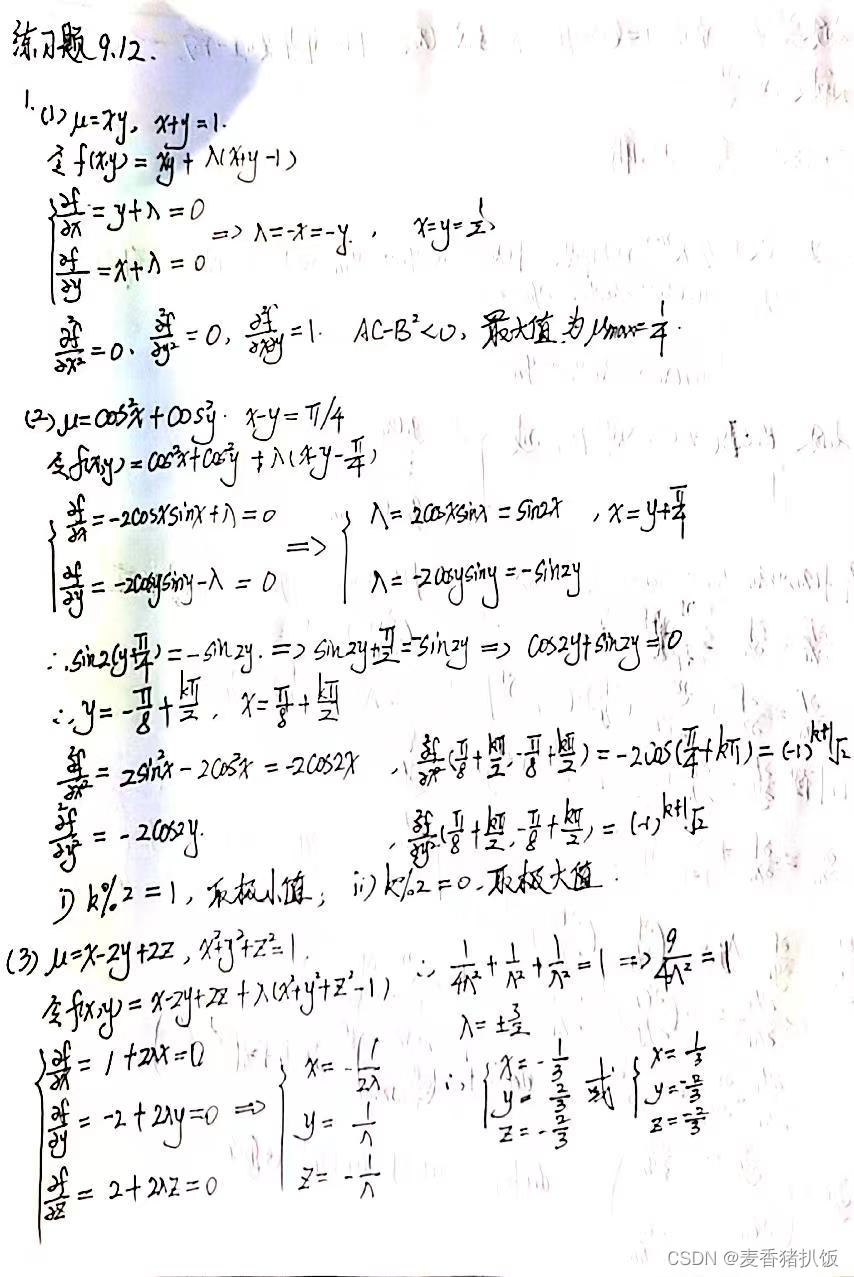 练习题 9.12.
1. (1) μ=xy, x+y=1.
令 f(x,y) = xy + λ(x+y-1)
∂f/∂x = y+λ = 0
∂f/∂y = x+λ = 0 => λ=-x=-y, x=y=1/2,
∂²f/∂x² = 0, ∂²f/∂y² = 0, ∂²f/∂x∂y = 1. AC-B²<0, 最大值为 μmax=1/4.
(2) μ=cos²x+cos²y. x-y=π/4
令 f(x,y) = cos²x+cos²y + λ(x-y-π/4)
∂f/∂x = -2cosxsinx+λ = 0 => λ = 2cosxsinx = sin2x, x=y+π/4
∂f/∂y = -2cosysiny-λ = 0 λ = -2cosysiny = -sin2y
∴ sin2(y+π/4) = -sin2y. => sin2y+π/2=-sin2y => cos2y+sin2y=0
∴ y = -π/8 + kπ/2, x = π/8 + kπ/2
∂²f/∂x² = 2sin²x - 2cos²x = -2cos2x, ∂²f/∂x²(π/8+kπ/2, -π/8+kπ/2) = -2cos(π/4+kπ) = (-1)^{k+1}√2
∂²f/∂y² = -2cos2y. , ∂²f/∂y²(π/8+kπ/2, -π/8+kπ/2) = (-1)^{k+1}√2
i) k%2=1, 取极小值; ii) k%2=0, 取极大值.
(3) μ=x-2y+2z, x²+y²+z²=1.
令 f(x,y) = x-2y+2z+λ(x²+y²+z²-1)
∂f/∂x = 1+2λx=0
∂f/∂y = -2+2λy=0 =>
∂f/∂z = 2+2λz=0
x = -1/2λ
y = 1/λ
z = -1/λ
∴ 1/4λ² + 1/λ² + 1/λ² = 1 => 9/4λ² = 1
λ = ±3/2
∴ x=-1/3 或 x=1/3
y=2/3 y=-2/3
z=-2/3 z=-2/3
CSDN @麦香猪扒饭